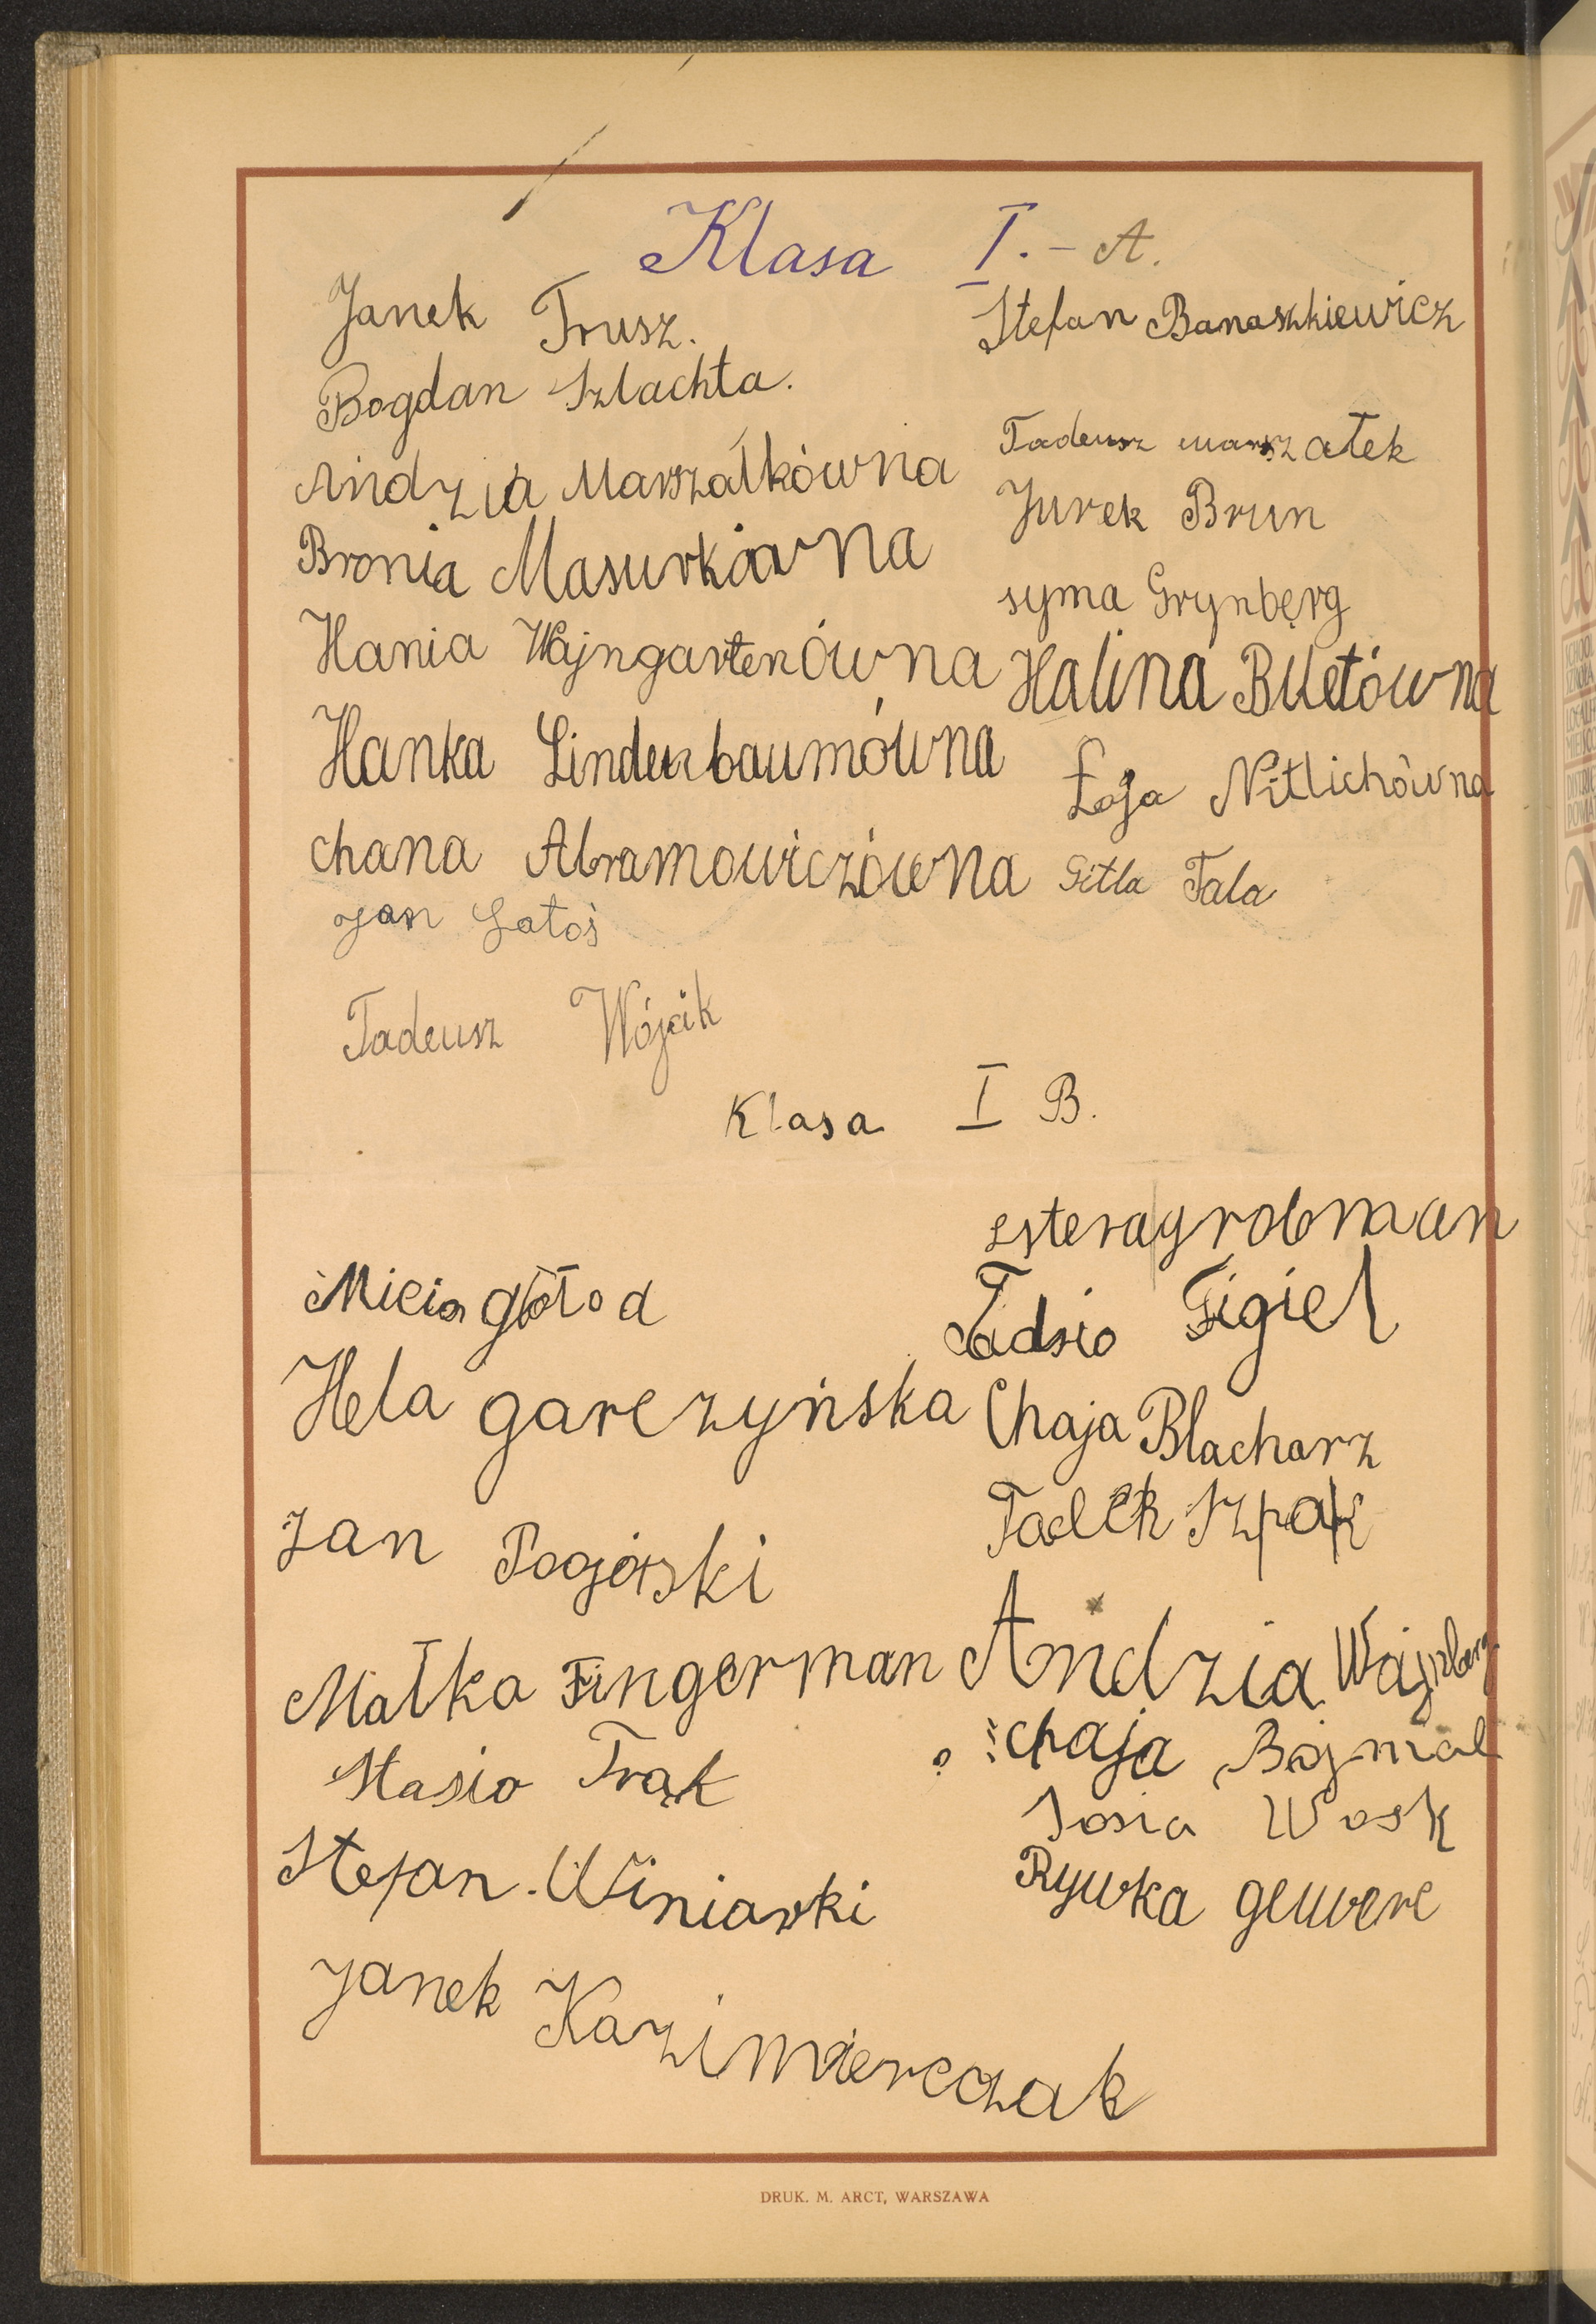 Klasa I. - A.
Janek Trusz.
Bogdan Szlachta.
Andzia Marszałkówna
Bronia Masurkówna
Hania Wajngartenówna
Hanka Lindenbaumówna
chana Abramowiczówna
Jan Latoś
Tadeusz Wójcik
Stefan Banaszkiewicz
Tadeusz marszałek
Jurek Brun
syma Grynberg
Halina Biletówna
Łaja Nitlichówna
Gitla Tala
Klasa I B.
Miecia głołod
Hela garczyńska
Jan Pogórski
Małka Fingerman
Stasio Trąk
Stefan. Winiarki
Janek Kazimierczak
estera grobman
Tadzio Figiel
Chaja Blacharz
Tadek Szpak
Andzia Wajnberg
chaja Bajmal
Josia Wosk
Rywka gewerc
DRUK. M. ARCT, WARSZAWA